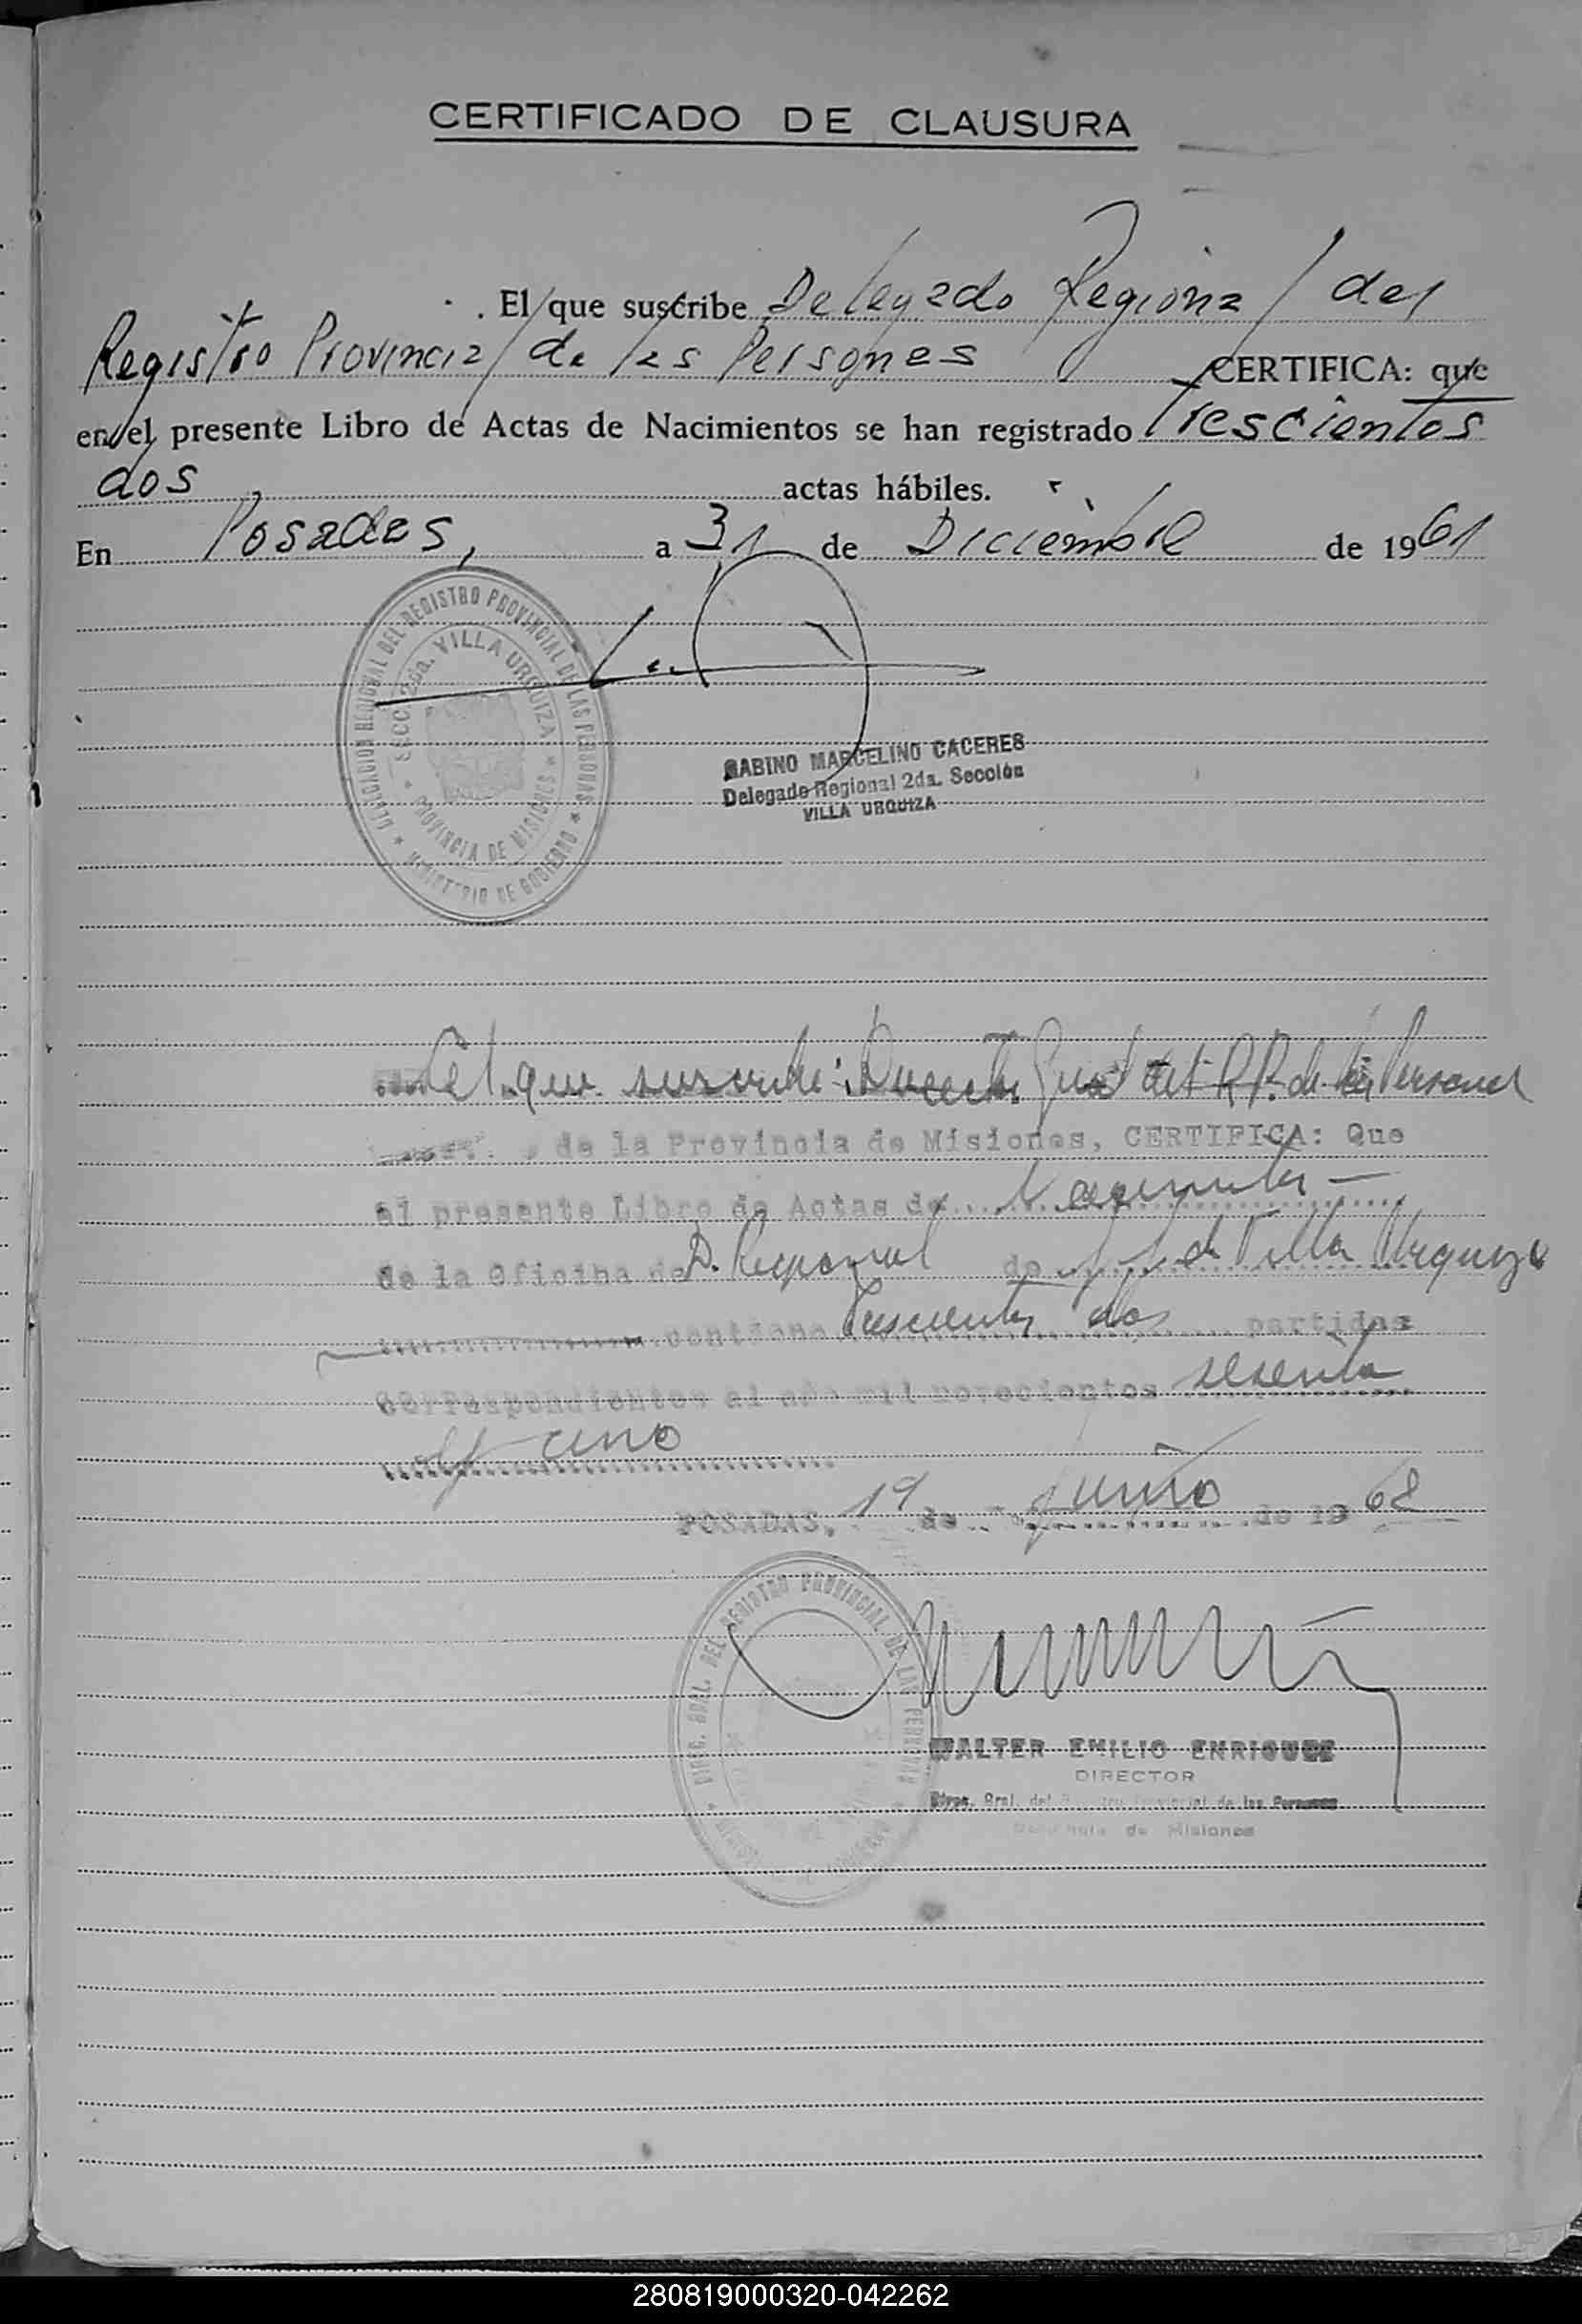 CERTIFICADO DE CLAUSURA
El que suscribe Delegado Regional del
Registro Provincial de las Personas CERTIFICA: que
en el presente Libro de Actas de Nacimientos se han registrado Trescientos
dos, actas hábiles.
En Posadas, a 31 de Diciembre de 1961
DELEGACION REGIONAL DEL REGISTRO PROVINCIAL DE LAS PERSONAS * MINISTERIO DE GOBIERNO *
SECC. 2da. VILLA URQUIZA * PROVINCIA DE MISIONES *
SABINO MARCELINO CACERES
Delegado Regional 2da. Sección
VILLA URQUIZA
El que suscribe: Director Gral del R.P. de las Personas
de la Provincia de Misiones, CERTIFICA: Que
el presente Libro de Actas de Nacimientos
de la Oficina de D. Regional de Villa Urquiza
contiene Trescientos dos partidas
correspondientes al año mil novecientos sesenta
y uno
POSADAS, 19 de Junio de 1968
DIRC. GRAL. DEL REGISTRO PROVINCIAL DE LAS PERSONAS
WALTER EMILIO ENRIQUEZ
DIRECTOR
Direc. Gral. del Registro Provincial de las Personas
Provincia de Misiones
280819000320-042262